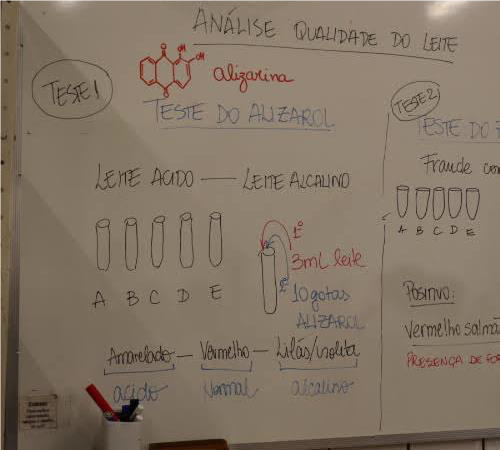 ANÁLISE QUALIDADE DO LEITE
TESTE 1
OH
OH
O
O
alizarina
TESTE DO ALIZAROL
LEITE ACIDO — LEITE ALCALINO
A B C D E
1º
3mL leite
2º
10 gotas
ALIZAROL
Amarelado — Vermelho — Lilás/violita
acido normal alcalino
TESTE 2
TESTE DO
Fraude com
A B C D E
POSITIVO:
Vermelho salmão
PRESENÇA DE FOR